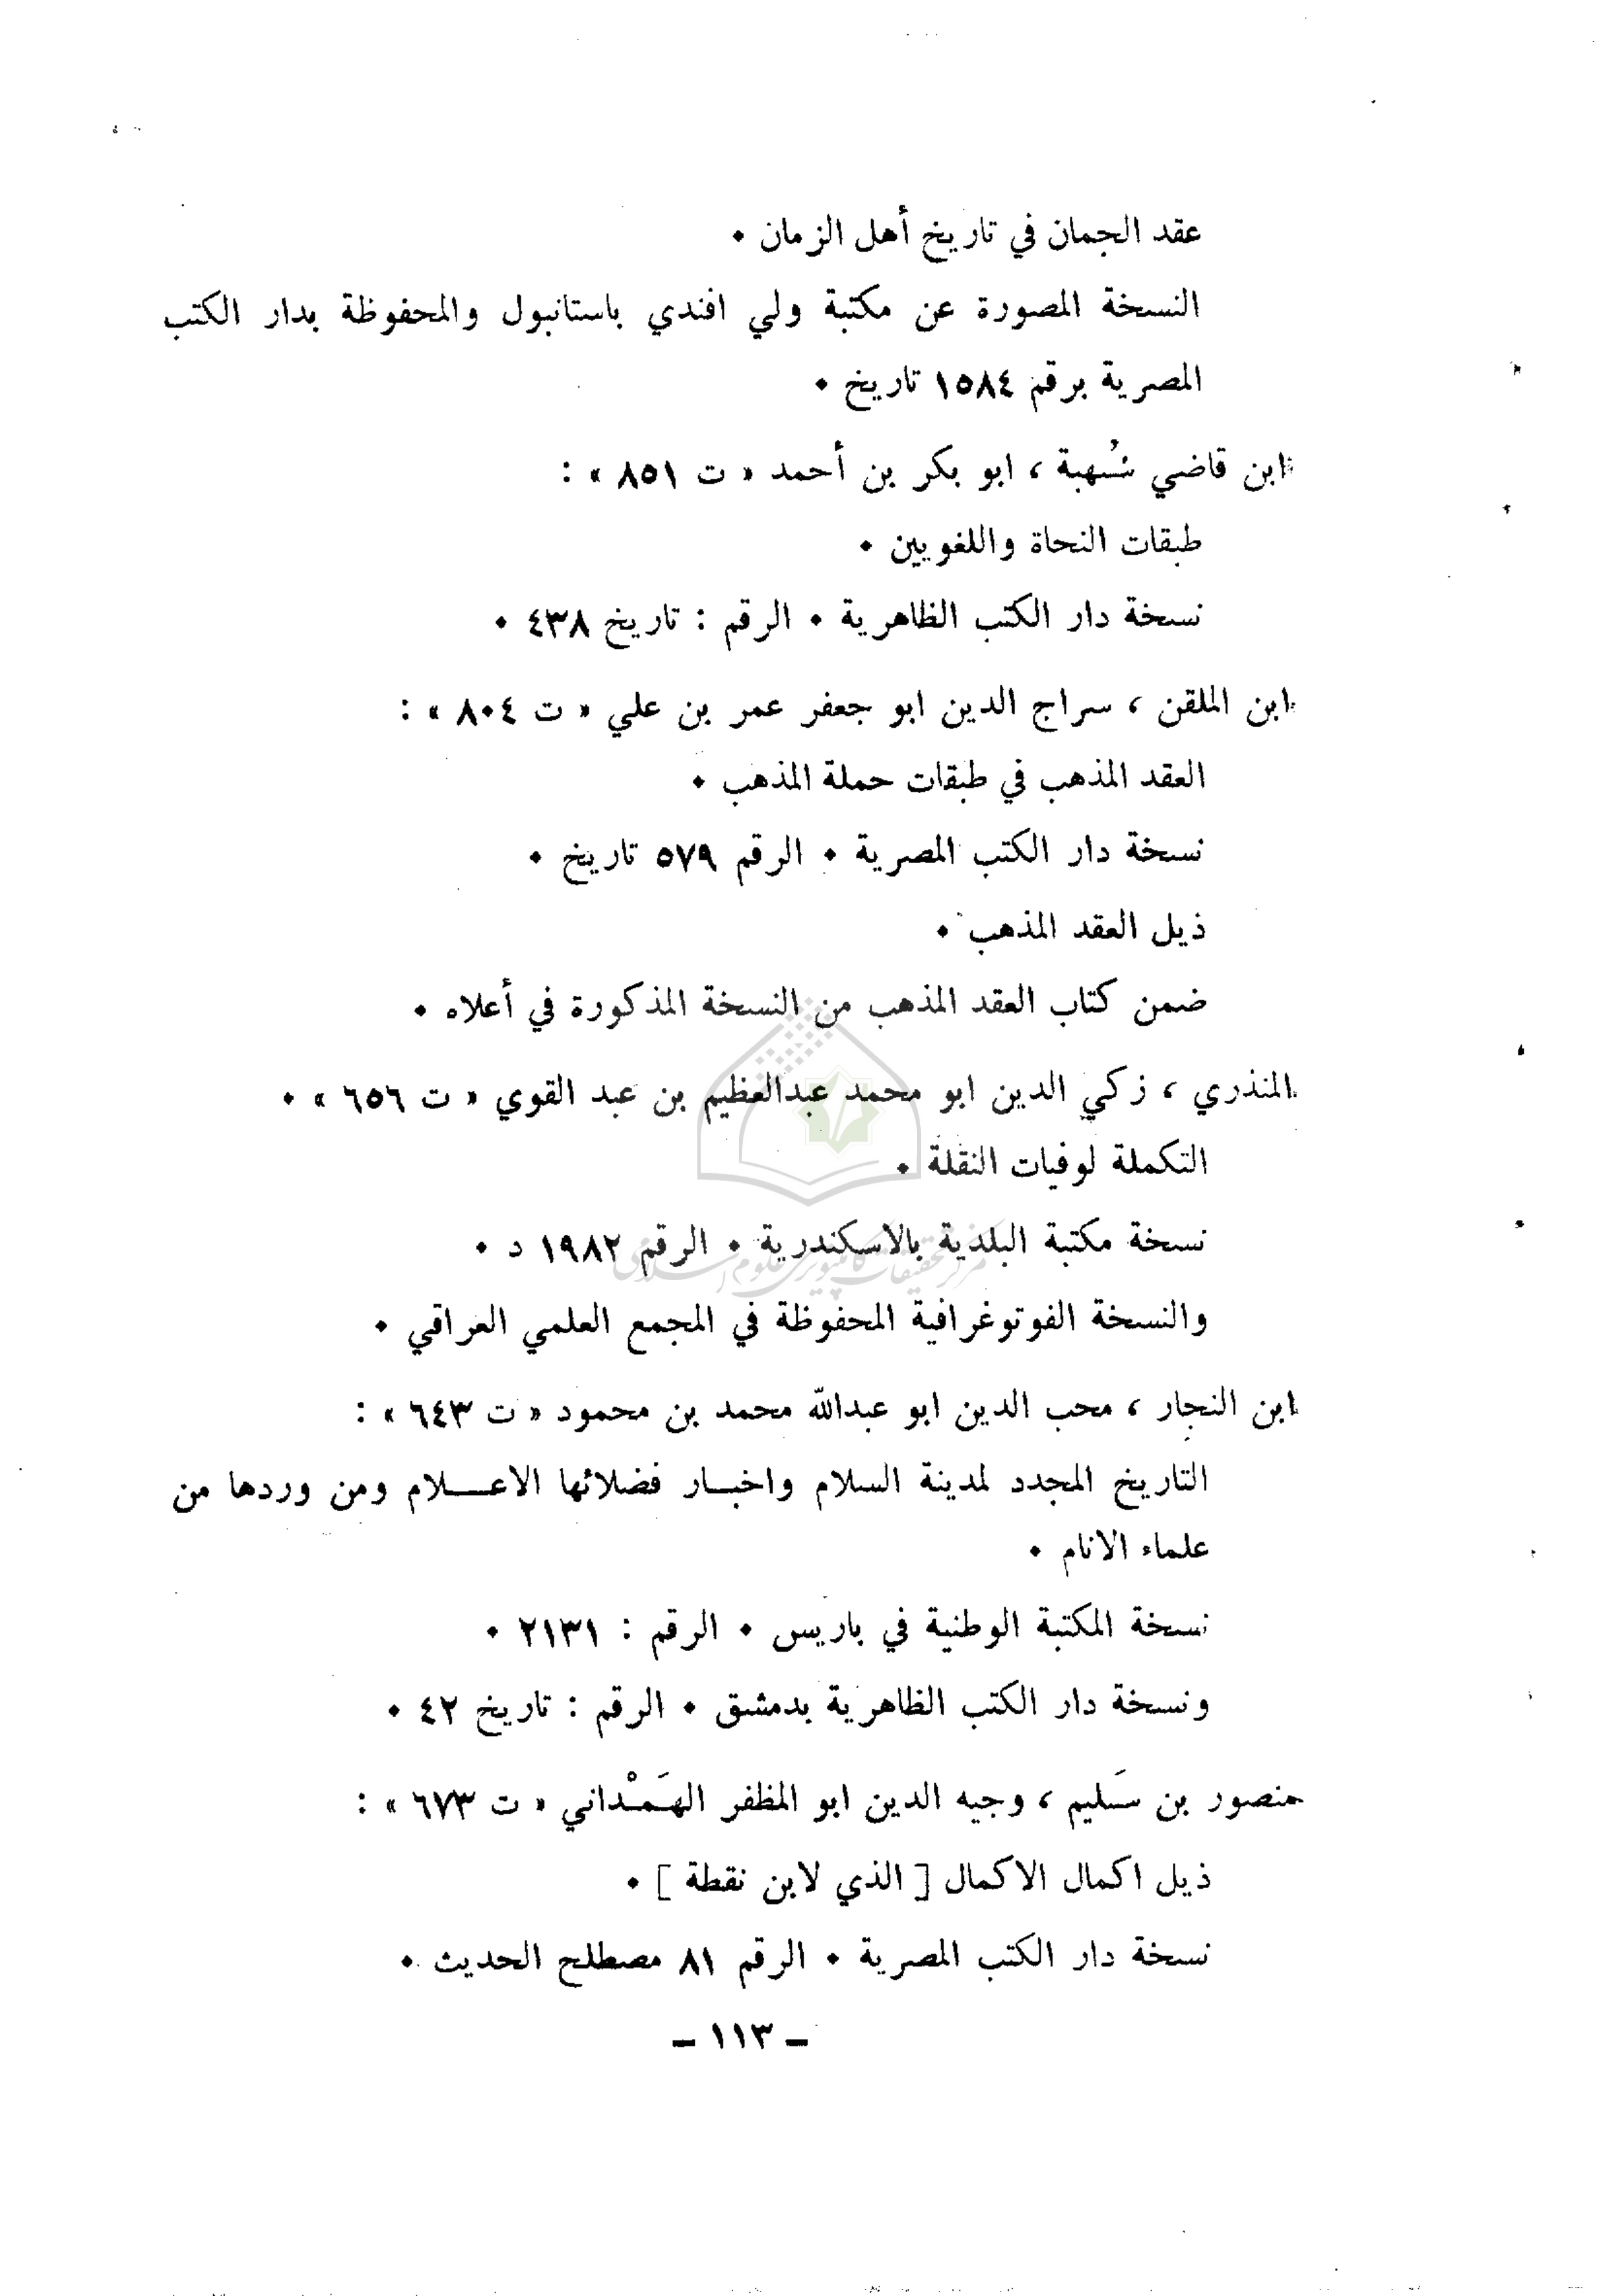 عقد الجمان في تاريخ أهل الزمان ٠
النسخة المصورة عن مكتبة ولي افندي باستانبول والمحفوظة بدار الكتب
المصرية برقم ١٥٨٤ تاريخ ٠
ابن قاضي شُهبة ، ابو بكر بن أحمد « ت ٨٥١ » :
طبقات النحاة واللغويين ٠
نسخة دار الكتب الظاهرية ٠ الرقم : تاريخ ٤٣٨ ٠
ابن الملقن ، سراج الدين ابو جعفر عمر بن علي « ت ٨٠٤ » :
العقد المذهب في طبقات حملة المذهب ٠
نسخة دار الكتب المصرية ٠ الرقم ٥٧٩ تاريخ ٠
ذيل العقد المذهب ٠
ضمن كتاب العقد المذهب من النسخة المذكورة في أعلاه ٠
المنذري ، زكي الدين ابو محمد عبدالعظيم بن عبد القوي « ت ٦٥٦ » ٠
التكملة لوفيات النقلة ٠
نسخة مكتبة البلدية بالاسكندرية ٠ الرقم ١٩٨٢ د ٠
مركز تحقيقات كامپيوترى علوم اسلامى
والنسخة الفوتوغرافية المحفوظة في المجمع العلمي العراقي ٠
ابن النجار ، محب الدين ابو عبدالله محمد بن محمود « ت ٦٤٣ » :
التاريخ المجدد لمدينة السلام واخبـار فضلائها الاعـــلام ومن وردها من
علماء الانام ٠
نسخة المكتبة الوطنية في باريس ٠ الرقم : ٢١٣١ ٠
ونسخة دار الكتب الظاهرية بدمشق ٠ الرقم : تاريخ ٤٢ ٠
منصور بن سَليم ، وجيه الدين ابو المظفر الهَمْداني « ت ٦٧٣ » :
ذيل اكمال الاكمال [ الذي لابن نقطة ] ٠
نسخة دار الكتب المصرية ٠ الرقم ٨١ مصطلح الحديث ٠
– ١١٣ –